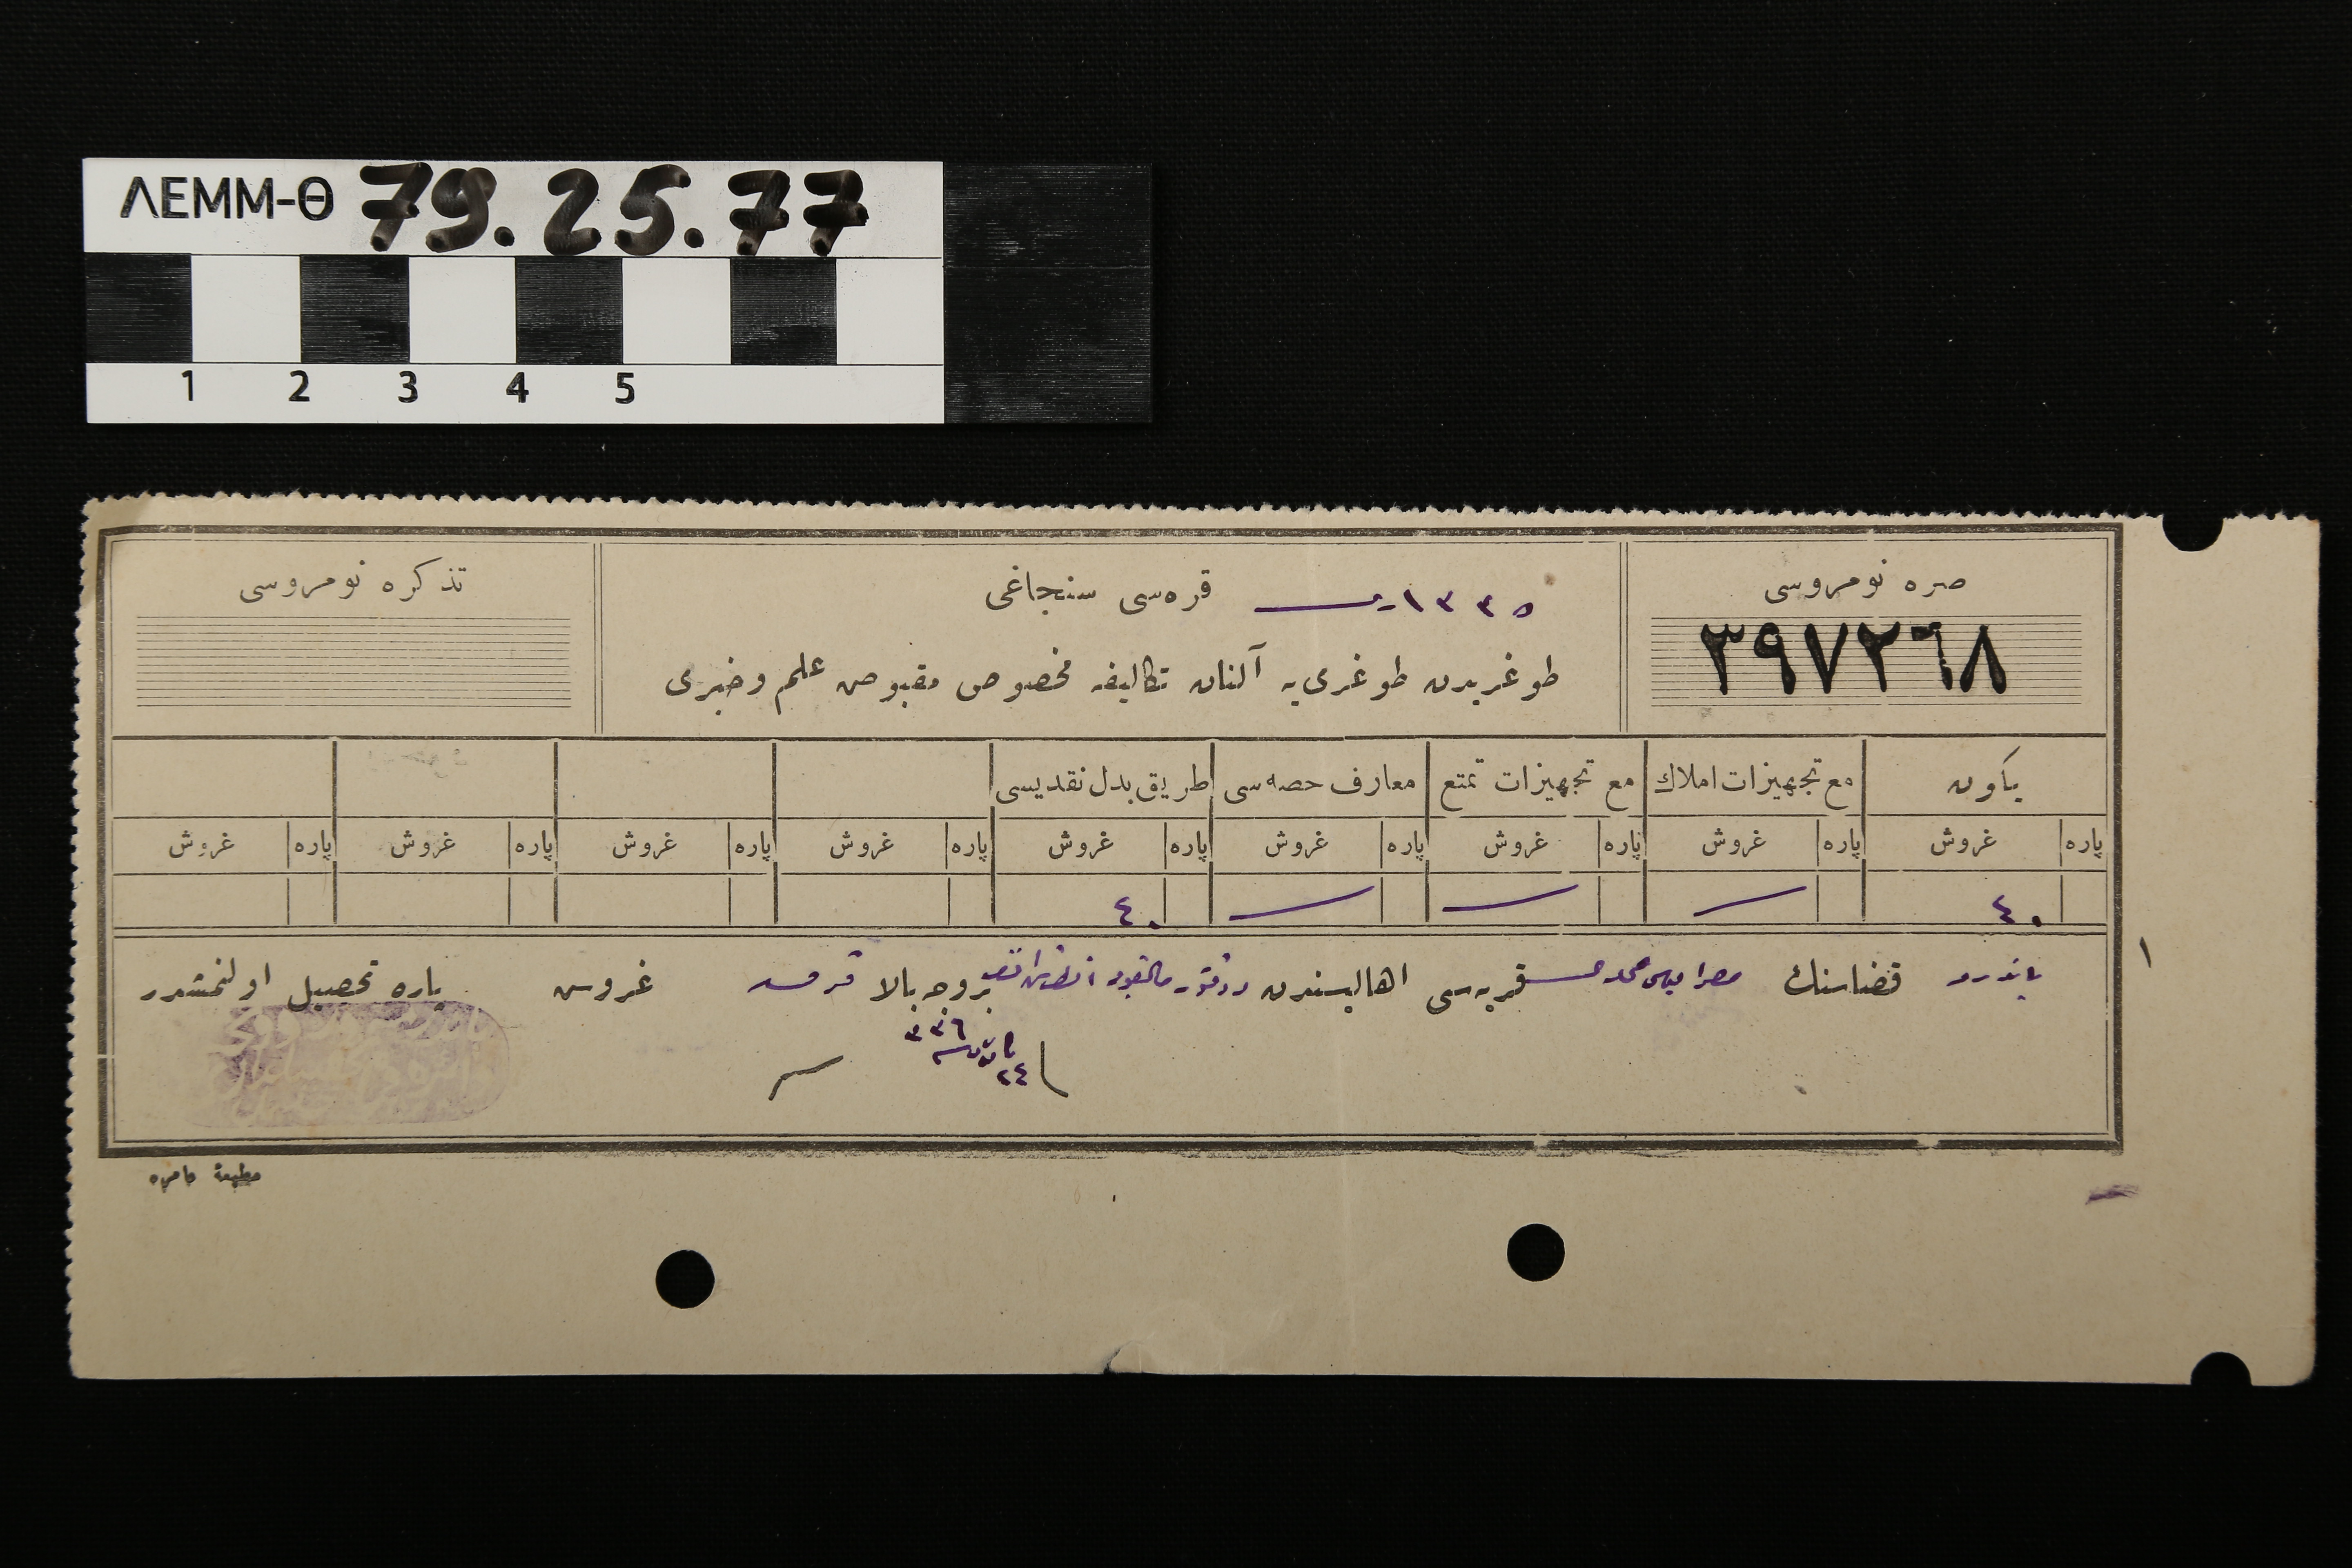 ΛΕΜΜ-Θ 79.25.77
1 2 3 4 5
صره نومروسی
٣٩٧٢٦٨
١٣٣٥ قره‌سی سنجاغی
طوغریدن طوغری‌یه آلنان تكالیفه مخصوص مقبوض علم و خبری
تذكره نومروسی
یكون مع تجهیزات املاك مع تجهیزات تمتع معارف حصه‌سی طریق بدل نقدیسی
پاره غروش پاره غروش پاره غروش پاره غروش پاره غروش پاره غروش پاره غروش پاره غروش پاره غروش
٤٠ ٤٠
١
قضاسنك قریه‌سی اهالیسندن بروجه بالا غروش پاره تحصیل اولنمشدر
٢٤ ٣٣٦
مطبعۀ عامره